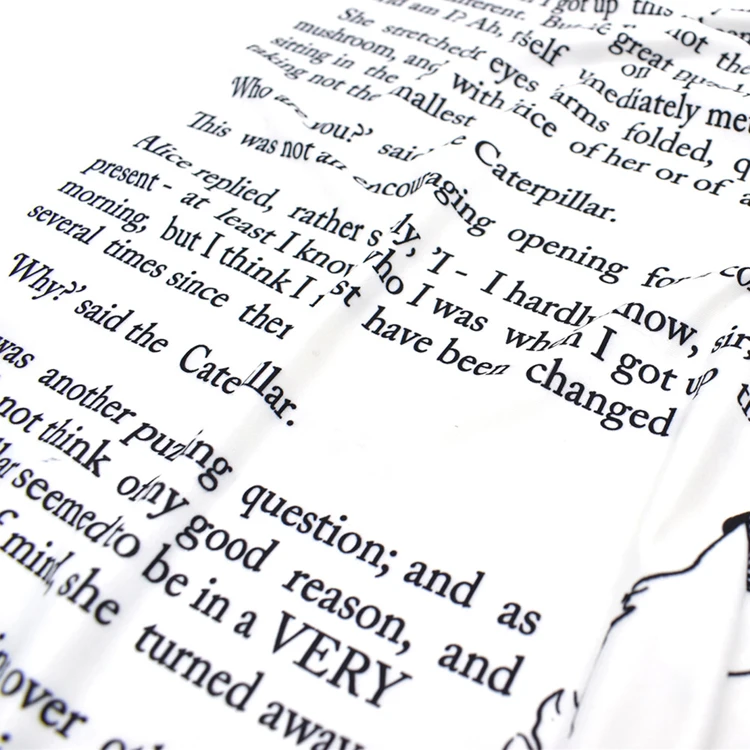 I got up this
different. But not the
am I? Ah, great
She stretched self on
mushroom, and eyes immediately met
sitting in the with arms folded,
taking not the smallest of her or of
'Who are you?' said Caterpillar.
This was not an encouraging opening for
Alice replied, rather s ly, 'I - I hardly know, sir,
present - at least I know who I was when I got up
morning, but I think I st have been changed
several times since then
'Why?' said the Cate llar.
was another puzling question; and as
not think of ny good reason, and
seemed to be in a VERY
mind, she turned away
over